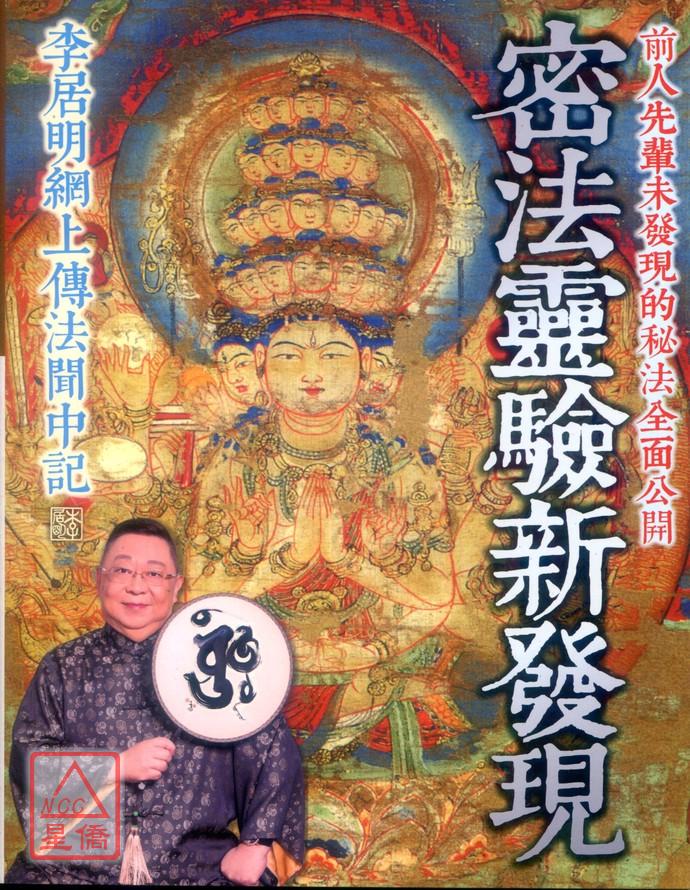 前人先輩未發現的秘法全面公開
密法靈驗新發現
李居明網上傳法聞中記
李居明
NCC
星僑